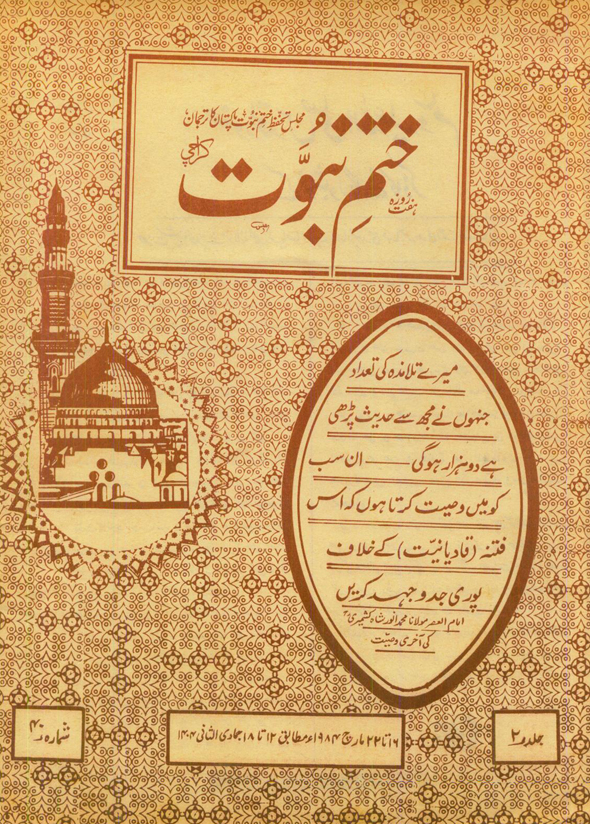 مجلس تحفظ ختم نبوت پاکستان کا ترجمان
ہفت روزہ
ختمِ نبوّت
کراچی
میرے تلامذہ کی تعداد
جنہوں نے مجھ سے حدیث پڑھی
ہے دو ہزار ہوگی —— ان سب
کو میں وصیت کرتا ہوں کہ اس
فتنہ (قادیانیّت) کے خلاف
پوری جدوجہد کریں
امام العصر مولانا محمد انور شاہ کشمیریؒ
کی آخری وصیّت
جلد ۲
۱۶ تا ۲۲ مارچ ۱۹۸۴ء مطابق ۱۲ تا ۱۸ جمادی الثانی ۱۴۰۴
شمارہ ۴۰